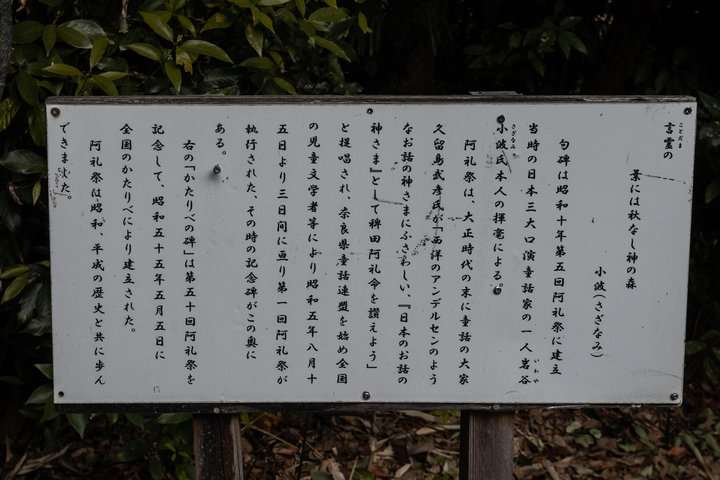 言霊の
葉には秋なし神の森
小波(さざなみ)
句碑は昭和十年第五回阿礼祭に建立
当時の日本三大口演童話家の一人岩谷
小波氏本人の揮毫による。
阿礼祭は、大正時代の末に童話の大家
久留島武彦氏が『西洋のアンデルセンのよう
なお話の神さまにふさわしい、『日本のお話の
神さま』として稗田阿礼命を讃えよう」
と提唱され、奈良県童話連盟を始め全国
の児童文学者等により昭和五年八月十
五日より三日間に亘り第一回阿礼祭が
執行された、その時の記念碑がこの奥に
ある。
右の「かたりべの碑」は第五十回阿礼祭を
記念して、昭和五十五年五月五日に
全国のかたりべにより建立された。
阿礼祭は昭和、平成の歴史と共に歩ん
できました。
こどだま
いわや
さざなみ